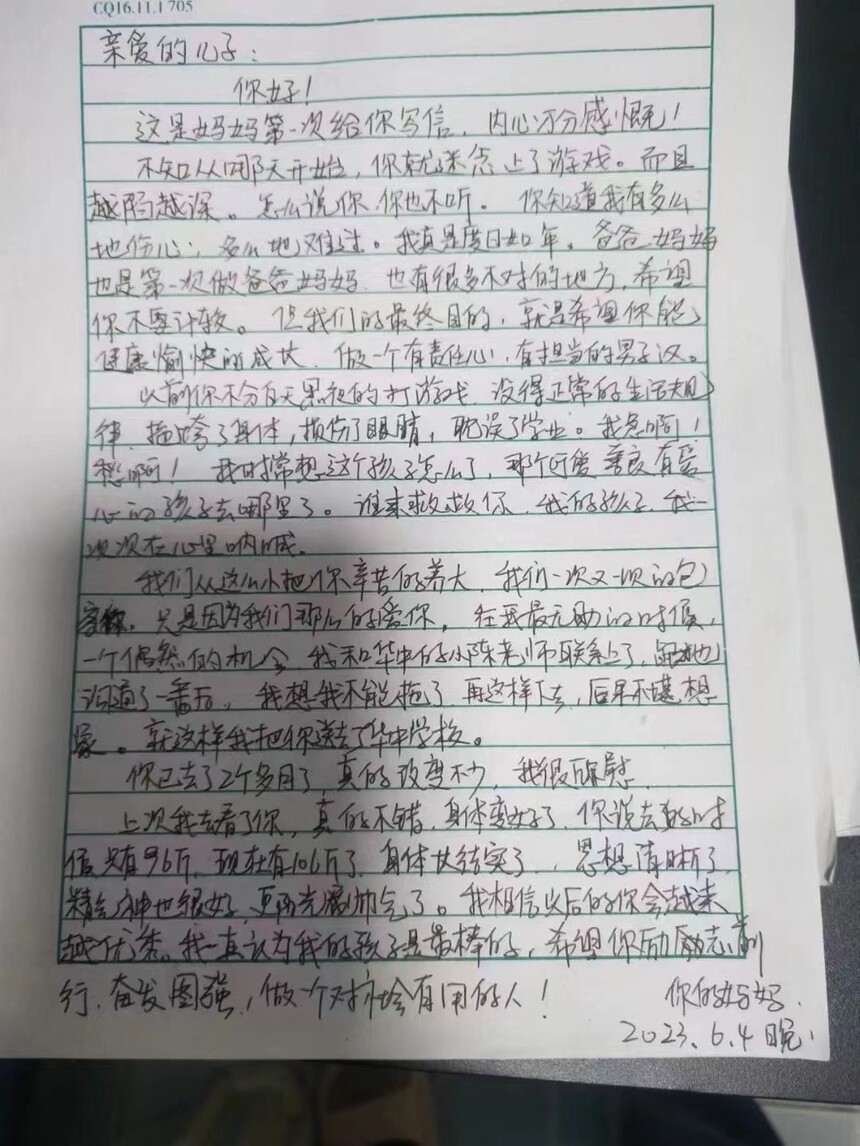 CQ16.11.1705
亲爱的儿子：
你好！
这是妈妈第一次给你写信，内心十分感慨！
不知从哪天开始，你就迷恋上了游戏。而且
越陷越深。怎么说你，你也不听。你知道我有多么
地伤心，多么地难过。我真是度日如年。爸爸妈妈
也是第一次做爸爸妈妈，也有很多不对的地方，希望
你不要计较。但我们的最终目的，就是希望你能
健康愉快的成长，做一个有责任心，有担当的男子汉。
以前你不分白天黑夜的打游戏，没得正常的生活规
律，拖垮了身体，损伤了眼睛，耽误了学业。我急啊！
愁啊！我时常想这个孩子怎么了，那个可爱善良有爱
心的孩子去哪里了。谁来救救你，我的孩子，我一
次次在心里呐喊。
我们从这么小把你辛苦的养大，我们一次又一次的包
容你，只是因为我们那么的爱你。在我最无助的时候，
一个偶然的机会，我和华中的小陈老师联系上了，跟她
沟通了一番后，我想我不能拖了，再这样下去，后果不堪想
象。就这样我把你送去了华中学校。
你已去了2个多月了，真的改变不少，我很欣慰，
上次我去看了你，真的不错，身体变好了，你说去的时
候只有96斤，现在有106斤了，身体长结实了，思想清晰了，
精气神也很好，更阳光帅气了。我相信以后的你会越来
越优秀。我一直认为我的孩子是最棒的，希望你励志前
行，奋发图强，做一个对社会有用的人！
你的妈妈.
2023.6.4晚.